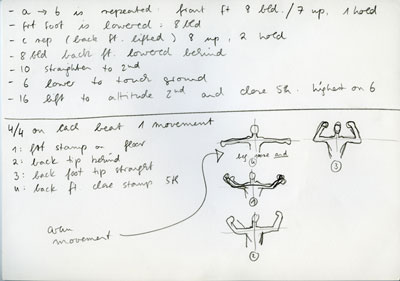 - a → b is repeated: front ft 8 bld. / 7 up, 1 hold
- frt foot is lowered: 8 bld
- c rep (back ft. lifted) 8 up, 2 hold
- 8 bld back ft. lowered behind
- 10 straighten to 2nd
- 6 lower to touch ground
- 16 lift to attitude 2nd and close 5th. highest on 6
4/4 on each beat 1 movement
1: frt stamp on floor
2: back tip behind
3: back foot tip straight
4: back ft close stamp 5th
arm
movement
and
4
3
1
2